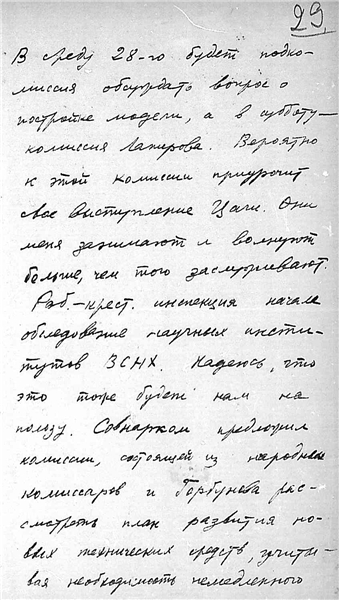 29
В среду 28-го будет подко-
миссия обсуждать вопрос о
постройке модели, а в субботу –
комиссия Лапирова. Вероятно
к этой комиссии приурочит
свое выступление Цаги. Они
меня занимают и волнуют
больше, чем того заслуживают.
Раб.-крест. инспекция начала
обследование научных инсти-
тутов ВСНХ. Надеюсь, что
это тоже будет нам на
пользу. Совнарком предложил
комиссии, состоящей из народных
комиссаров и Горбунова рас-
смотреть план развития но-
вых технических средств, учиты-
вая необходимость немедленного